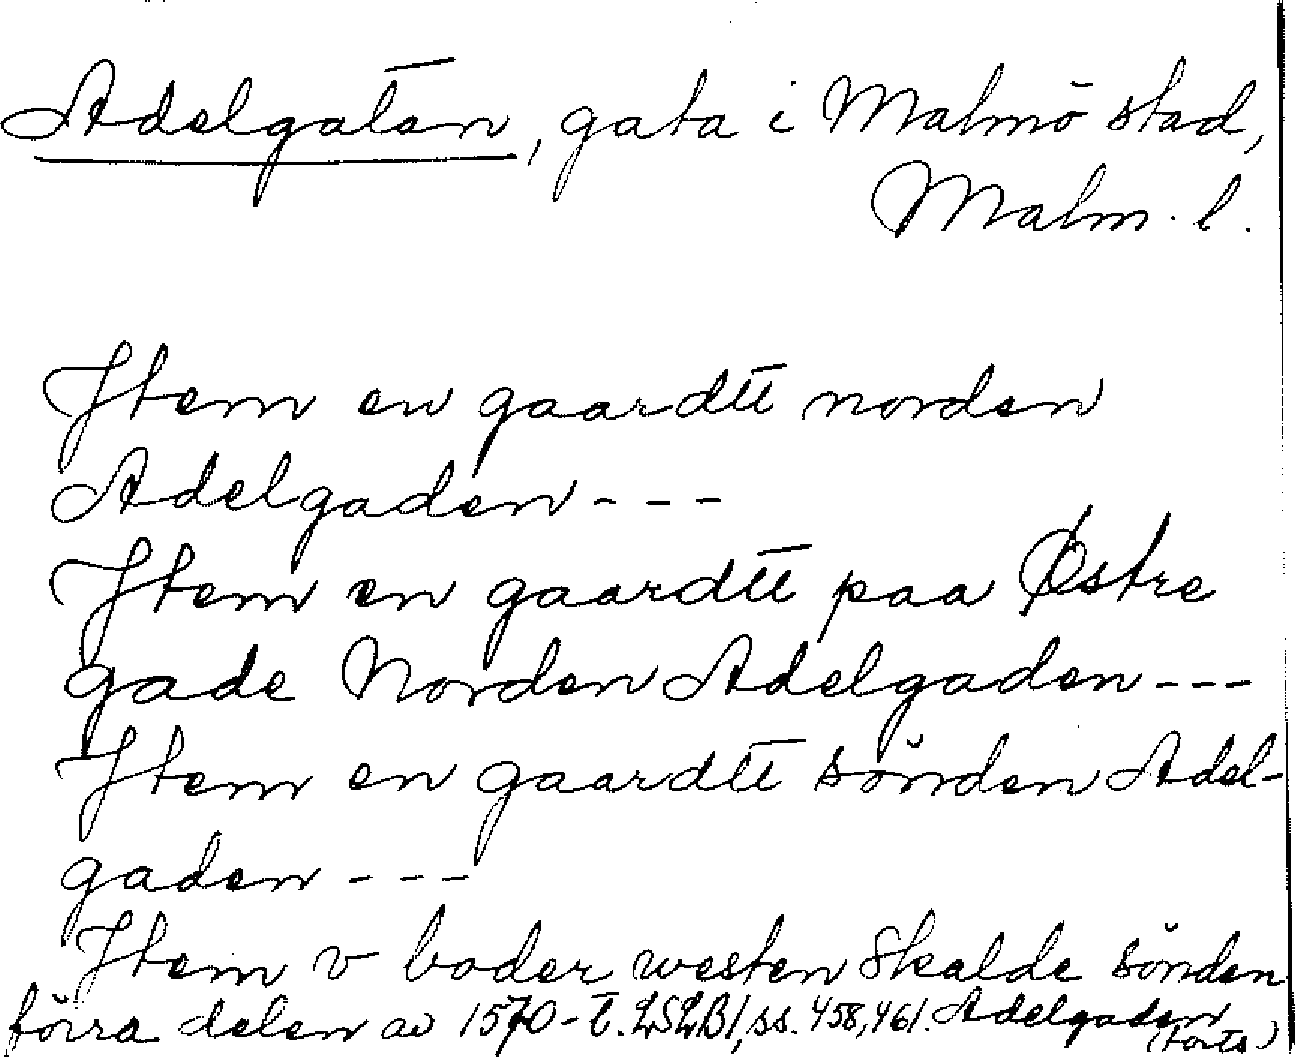 Adelgatan, gata i Malmö stad,
Malm. l.
Item en gaardtt norden
Adelgaden - - -
Item en gaardtt paa Østre
gade Norden Adelgaden - - -
Item en gaardtt sönden Adel-
gaden - - -
Item v boder westen Skalde sönden
Adelgaden
förra delen av 1570-t. LSLB 1, ss. 458, 461.
(Forts.)